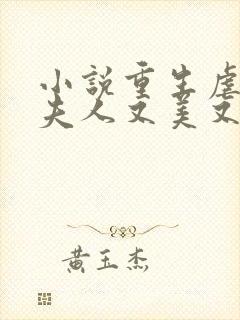 小說重生虐
夫人又美又
黃玉杰